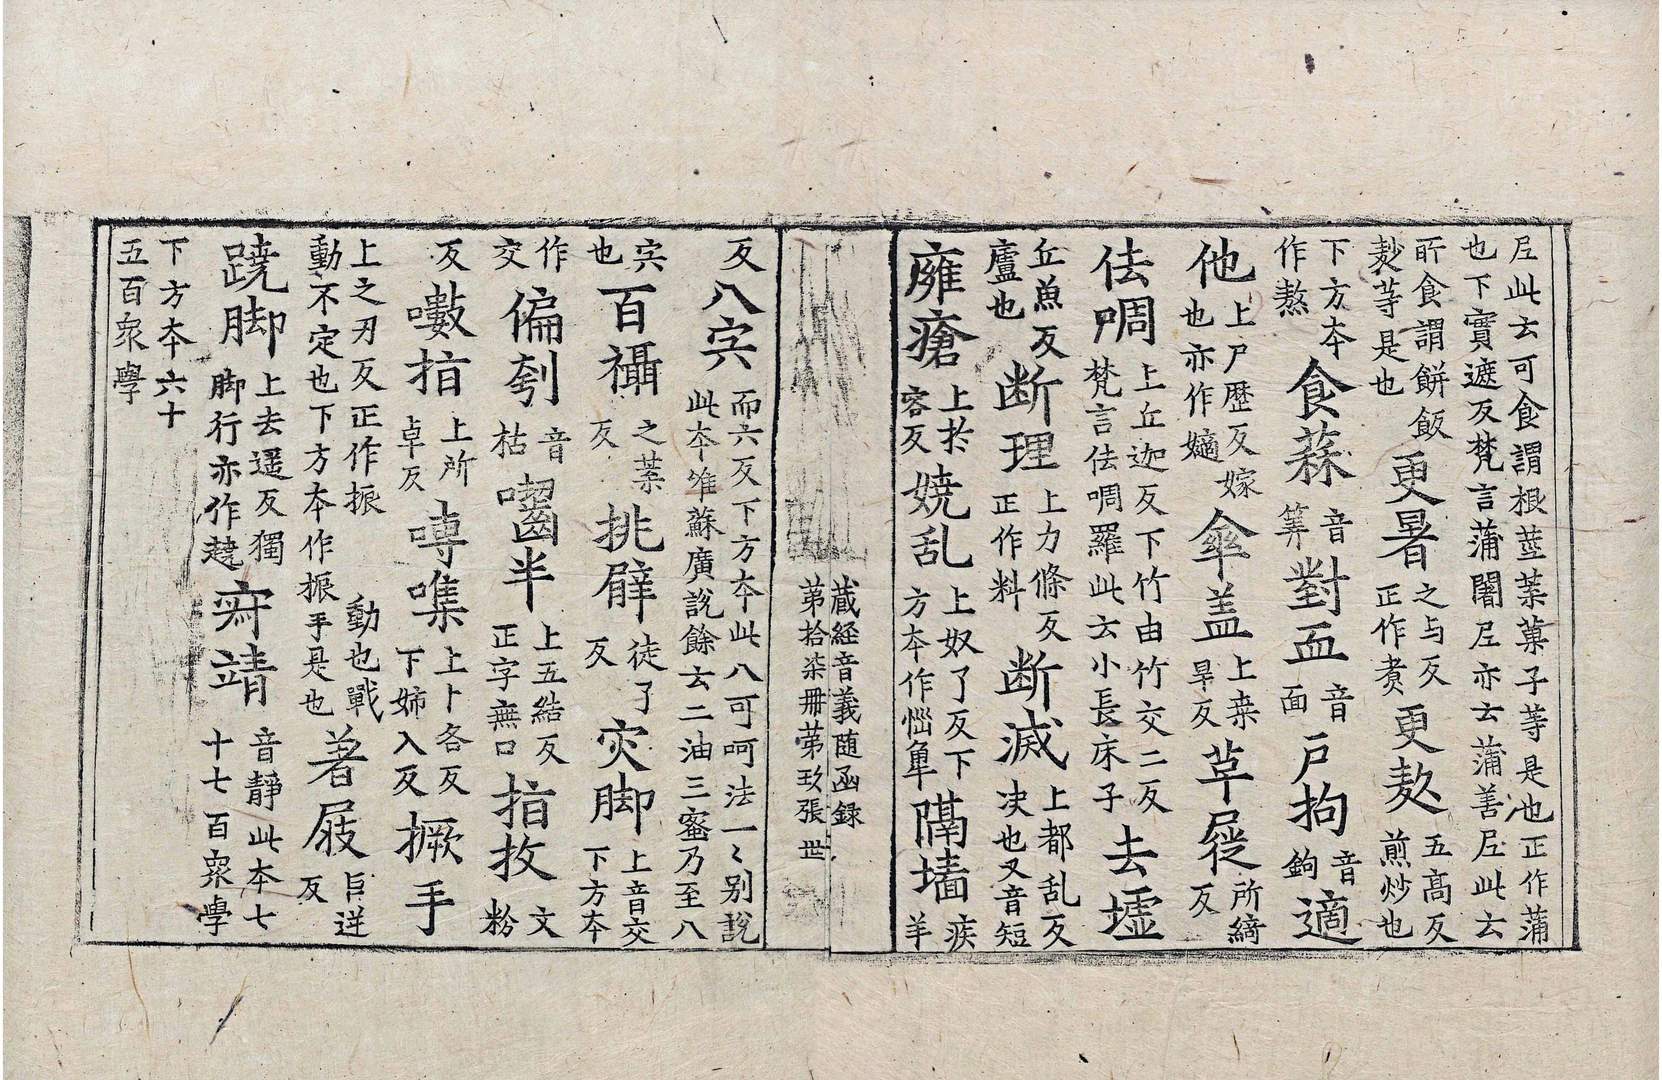 尼此云可食謂根莖葉菓子等是也正作蒲
也下實遮反梵言蒲闍尼亦云蒲善尼此云
所食謂餅飯麨等是也更暑之与反正作煑更熬五髙反煎炒也
下方本作熬食蒜音筭對靣音面戶拘音鉤適
他上尸歴反嫁也亦作嫡傘盖上桒旱反草屣所綺反
佉啁上丘迦反下竹由竹交二反梵言佉啁羅此云小長床子去墟
丘魚反廬也断理上力條反正作料断滅上都乱反决也又音短
癕瘡上扵容反娆乱上奴了反下方本作惱𠦑隔墻疾羊
藏経音義随函録
第拾柒冊第玖張世
反八㝐而六反下方本此八可呵法一〻别說此本唯蘇廣說餘云二油三蜜乃至八
㝐也百襵之葉反挑臂徒了反灾脚上音交下方本
作交偏刳音枯囓半上五結反正字無口捪抆文粉
反嗽指上所卓反噂噍上卜各反下姉入反橛手
上之刃反正作振動也戰動不定也下方本作振手是也著屐巨逆反
蹺脚上去遥反獨脚行亦作趬㝛靖音靜此本七十七百衆學
下方本六十五百衆學